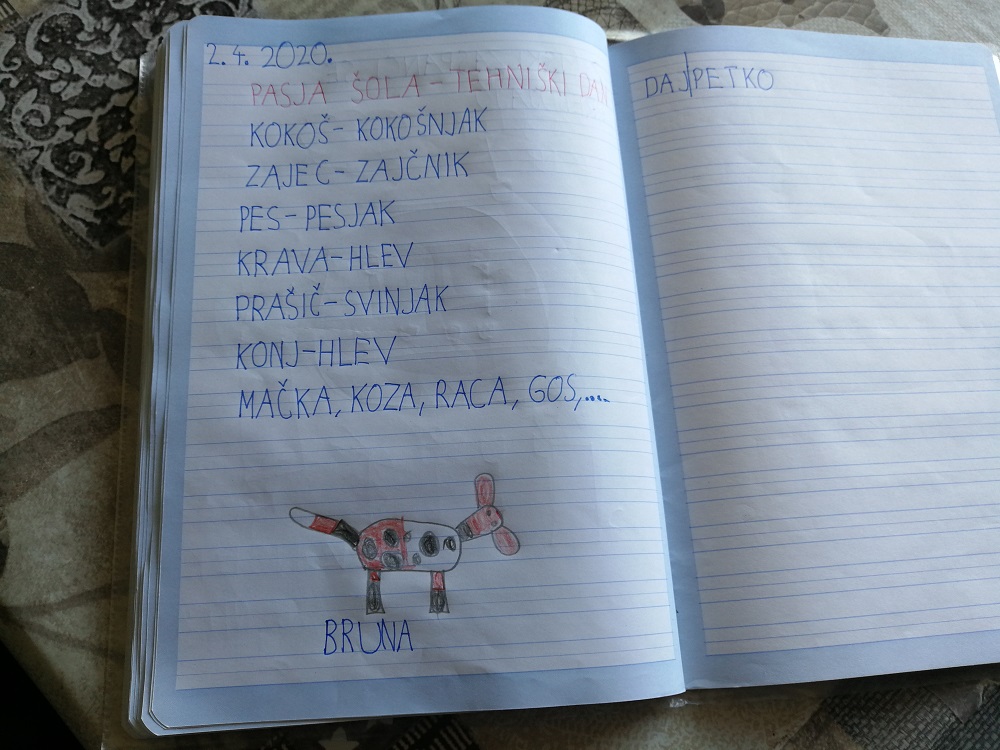 2.4. 2020.
PASJA ŠOLA - TEHNIŠKI DAN
KOKOŠ - KOKOŠNJAK
ZAJEC - ZAJČNIK
PES - PESJAK
KRAVA - HLEV
PRAŠIČ - SVINJAK
KONJ - HLEV
MAČKA, KOZA, RACA, GOS,....
BRUNA
DAJ|PETKO